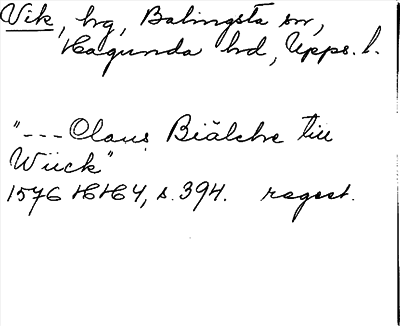 Vik, hg, Balingsta sn,
Hagunda hd, Upps. l.
"--- Olaus Biälche till
Wiick"
1576 HH4, s. 394. regest.